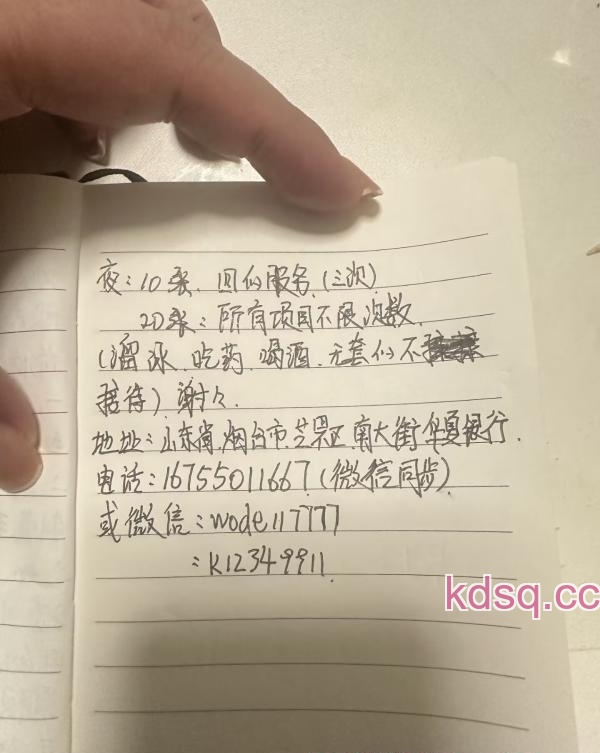 夜：10张．回仂服务．(三次)
20张：所有项目不限次数．
(溜冰．吃药．喝酒．无套仂不
接待）谢谢．
地址：山东省．烟台市．芝罘区．南大街华夏银行．
电话：16755011667（微信同步）
或微信：wode117777
：k12349911
kdsq.cc